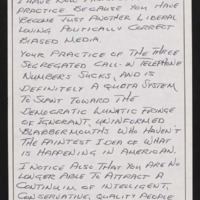 I HAVE NOW
PRACTICE BECAUSE YOU HAVE
BECOME JUST ANOTHER LIBERAL
LOVING POLITICALLY CORRECT
BIASED MEDIA.
YOUR PRACTICE OF THE THREE
SEGREGATED CALL-IN TELEPHONE
NUMBERS SUCKS, AND IS
DEFINITELY A QUOTA SYSTEM
TO SLANT TOWARD THE
DEMOCRATIC LUNATIC FRINGE
OF IGNORANT, UNINFORMED
BLABBERMOUTHS WHO HAVEN'T
THE FAINTEST IDEA OF WHAT
IS HAPPENING IN AMERICAN.
I NOTICE ALSO THAT YOU ARE NO
LONGER ABLE TO ATTRACT A
CONTINUM OF INTELLIGENT,
CONSERVATIVE, QUALITY PEOPLE